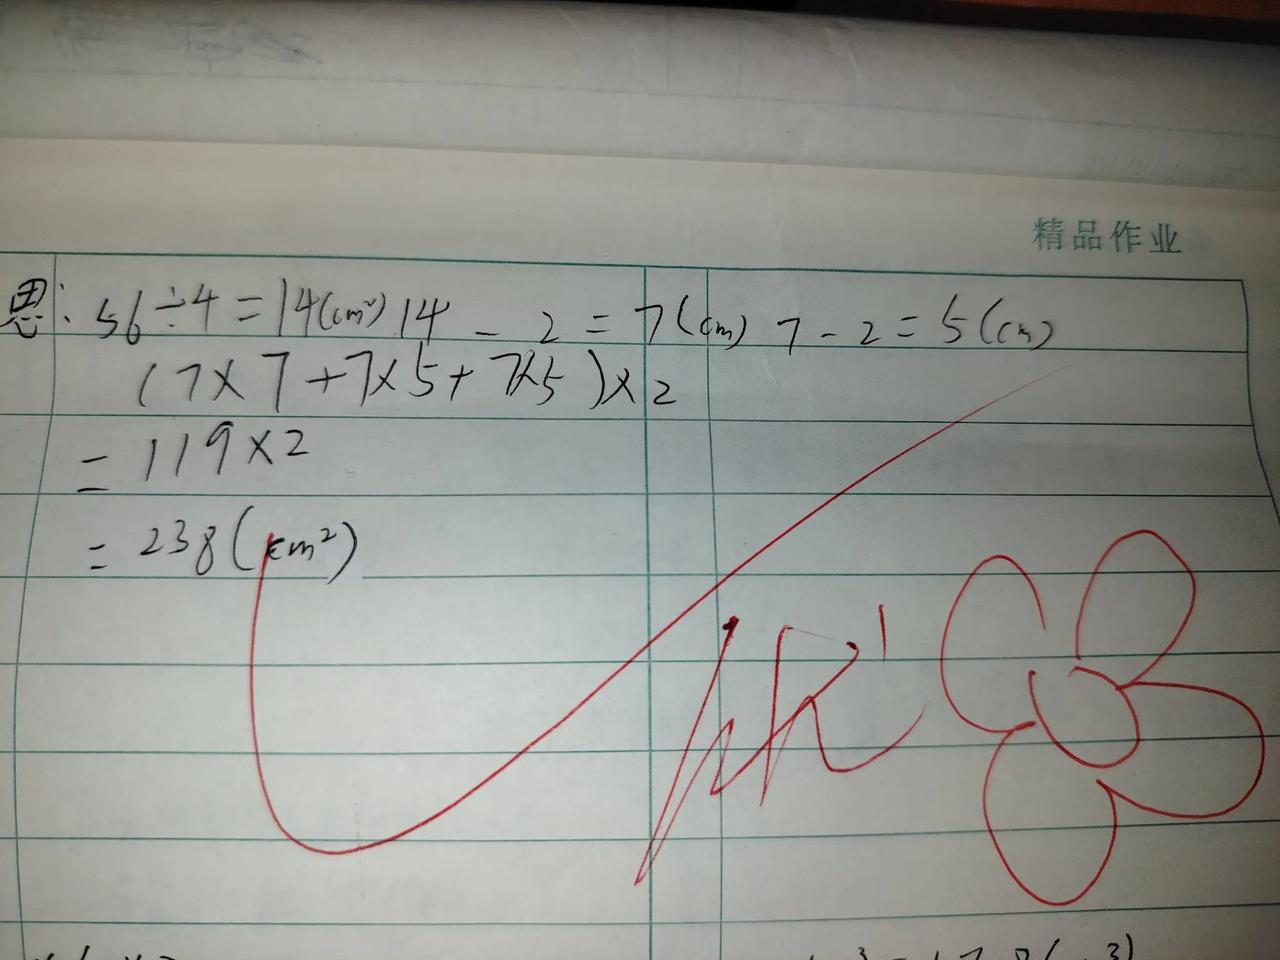 精品作业
思: 56÷4=14(cm²) 14 - 2 = 7(cm) 7-2=5(cm)
(7×7+7×5+7×5)×2
= 119×2
= 238(cm²)